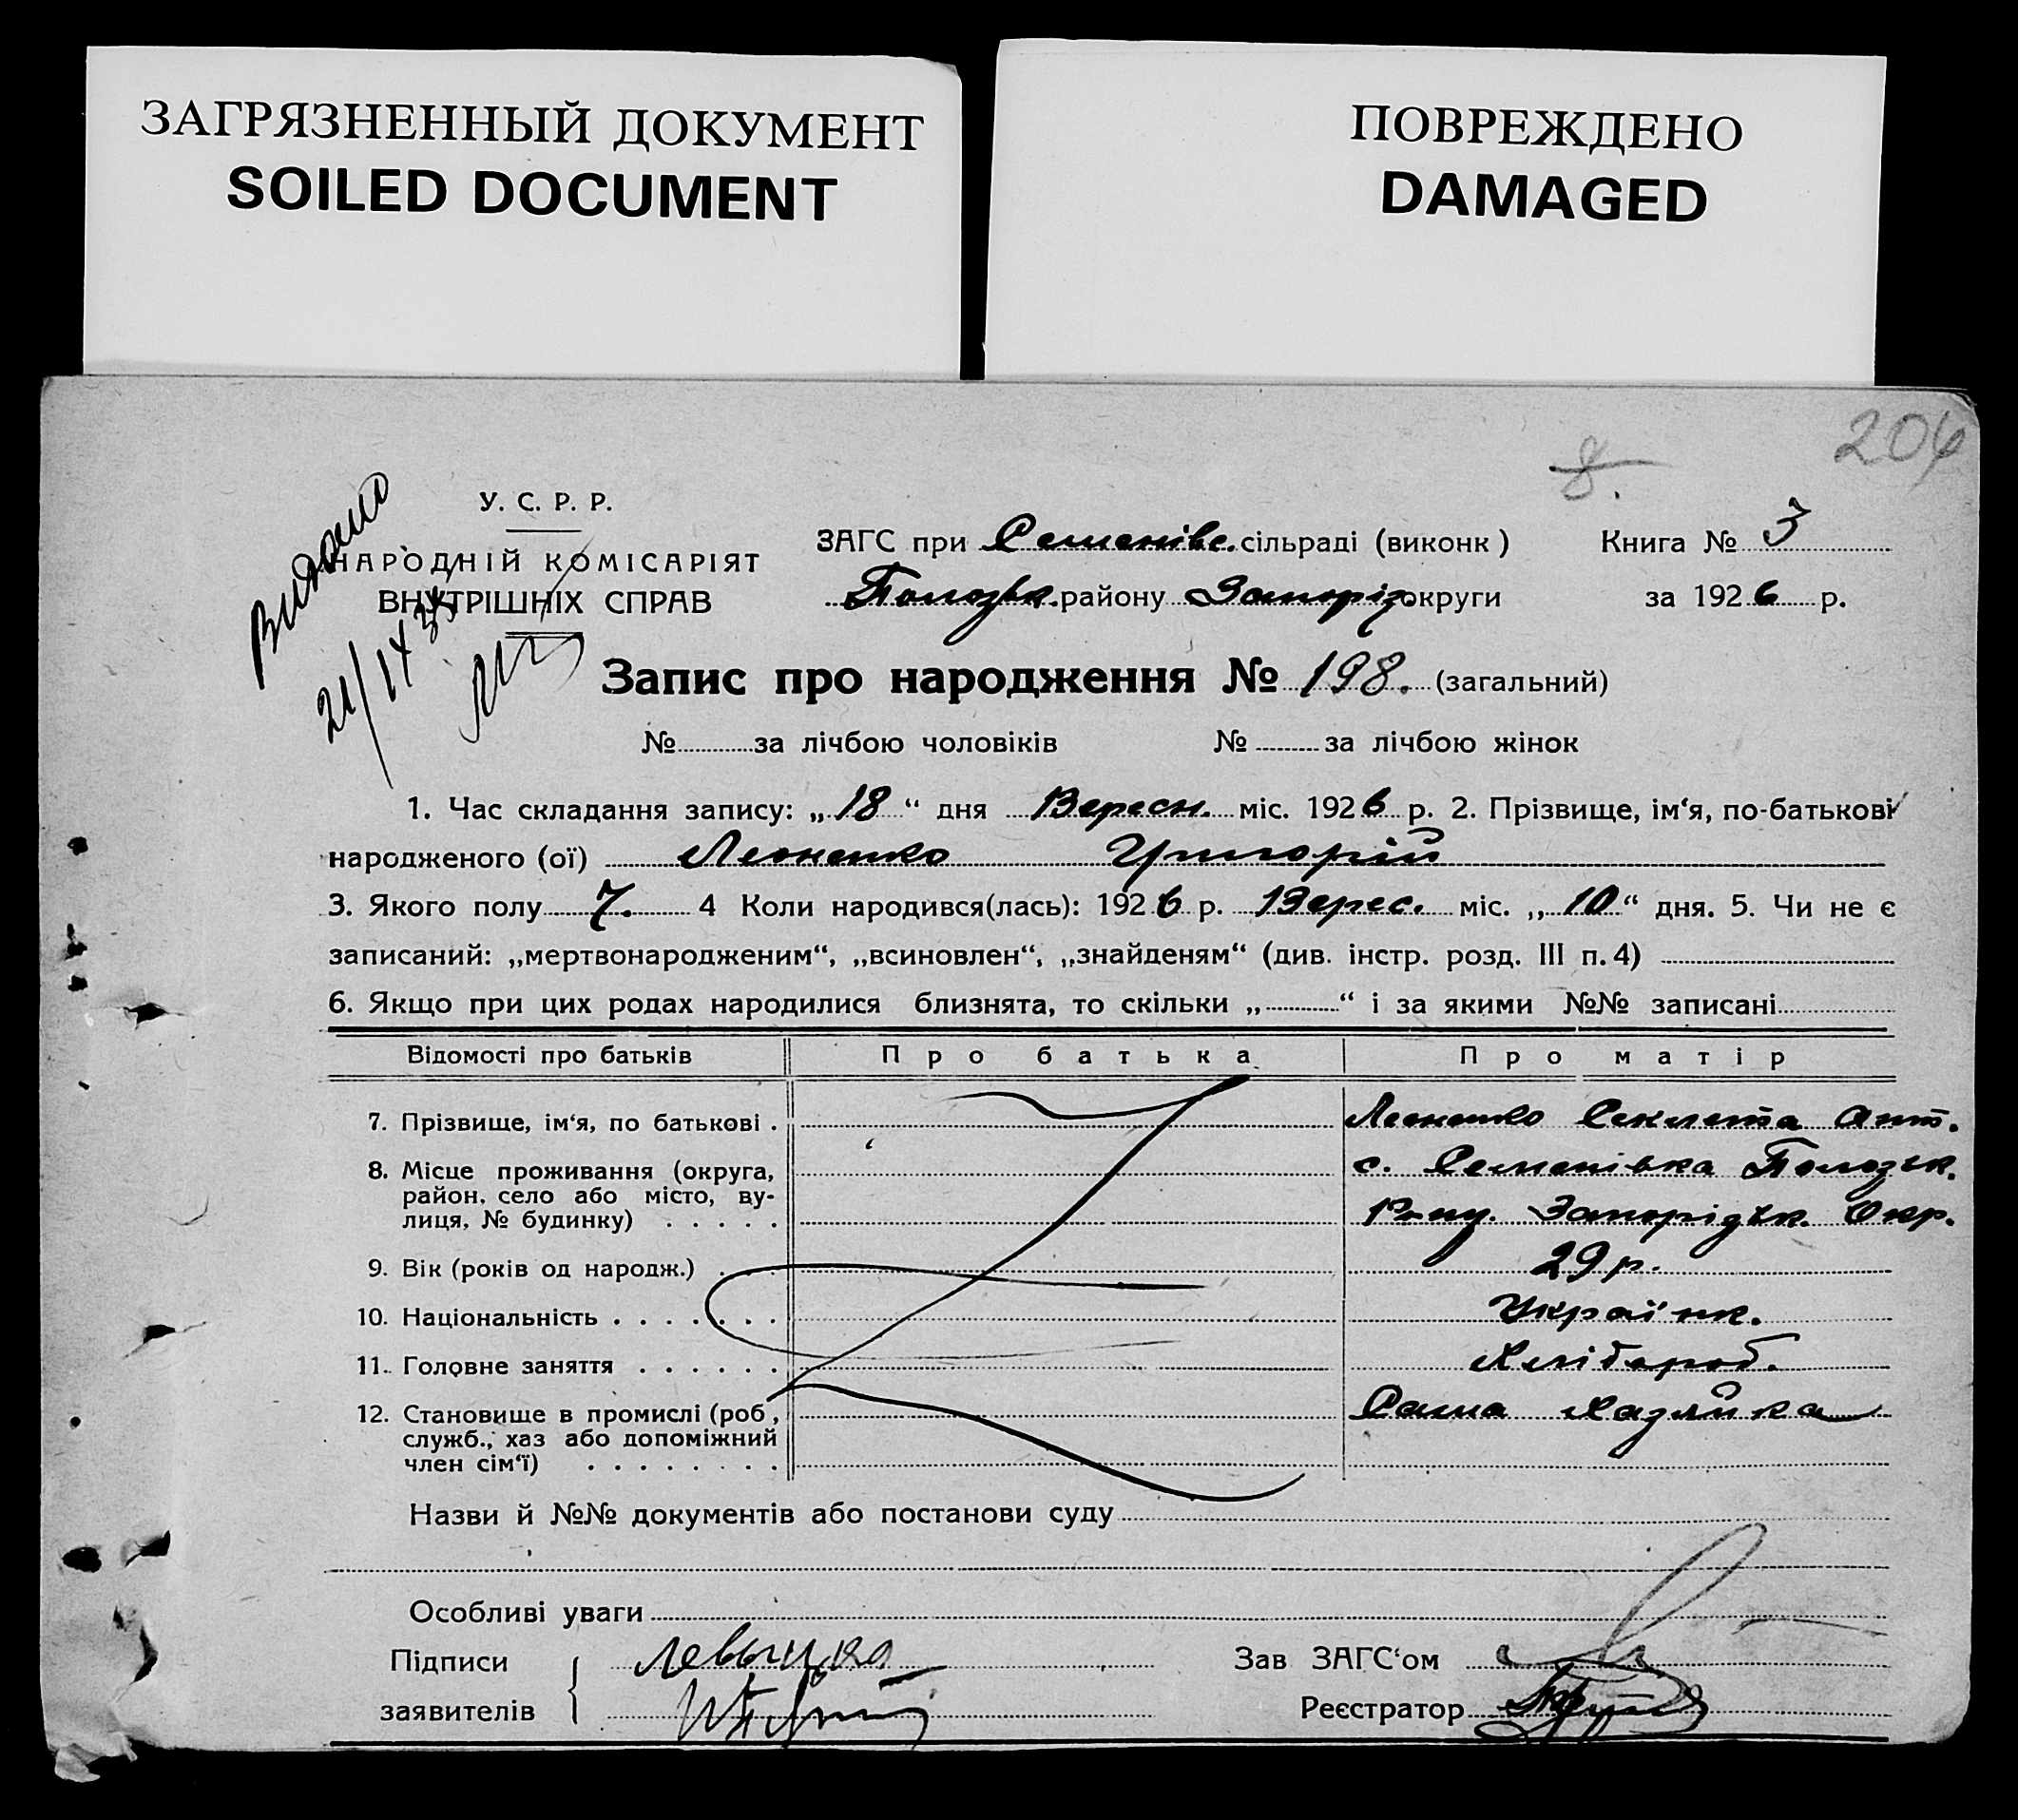 ЗАГРЯЗНЕННЫЙ ДОКУМЕНТ
SOILED DOCUMENT
ПОВРЕЖДЕНО
DAMAGED
206
8.
Видано
21/IX 35
У. С. Р. Р.
НАРОДНІЙ КОМІСАРІЯТ
ВНУТРІШНІХ СПРАВ
ЗАГС при Семенівс. сільраді (виконк) Книга № 3
Пологськ. району Запоріз. округи за 1926 р.
Запис про народження № 198. (загальний)
№ за лічбою чоловіків № за лічбою жінок
1. Час складання запису: „18“ дня Вересн. міс. 1926 р. 2. Прізвище, ім‘я, по-батькові
народженого (ої) Леоненко Григорій
3. Якого полу Ч. 4 Коли народився(лась): 1926 р. Верес. міс. „10“ дня. 5. Чи не є
записаний: „мертвонародженим“, „всиновлен“, „знайденям“ (див. інстр. розд. III п. 4)
6. Якщо при цих родах народилися близнята, то скільки „ “ і за якими №№ записані
Відомості про батьків Про батька Про матір
7. Прізвище, ім‘я, по батькові . Леоненко Секлета Ант.
8. Місце проживання (округа, с. Семенівка Пологськ.
район. село або місто, ву-
лиця, № будинку) . . . . . Запорідськ. Окр.
9. Вік (років од народж.) . . . 29 р.
10. Національність . . . . . . . Українк.
11. Головне заняття . . . . . . Хліборob.
12. Становище в промислі (роб, Сама Хазяйка
служб., хаз або допоміжний
член сім‘ї) . . . . . . . .
Назви й №№ документів або постанови суду
Особливі уваги
Підписи Зав ЗАГС‘ом
заявителів Реєстратор